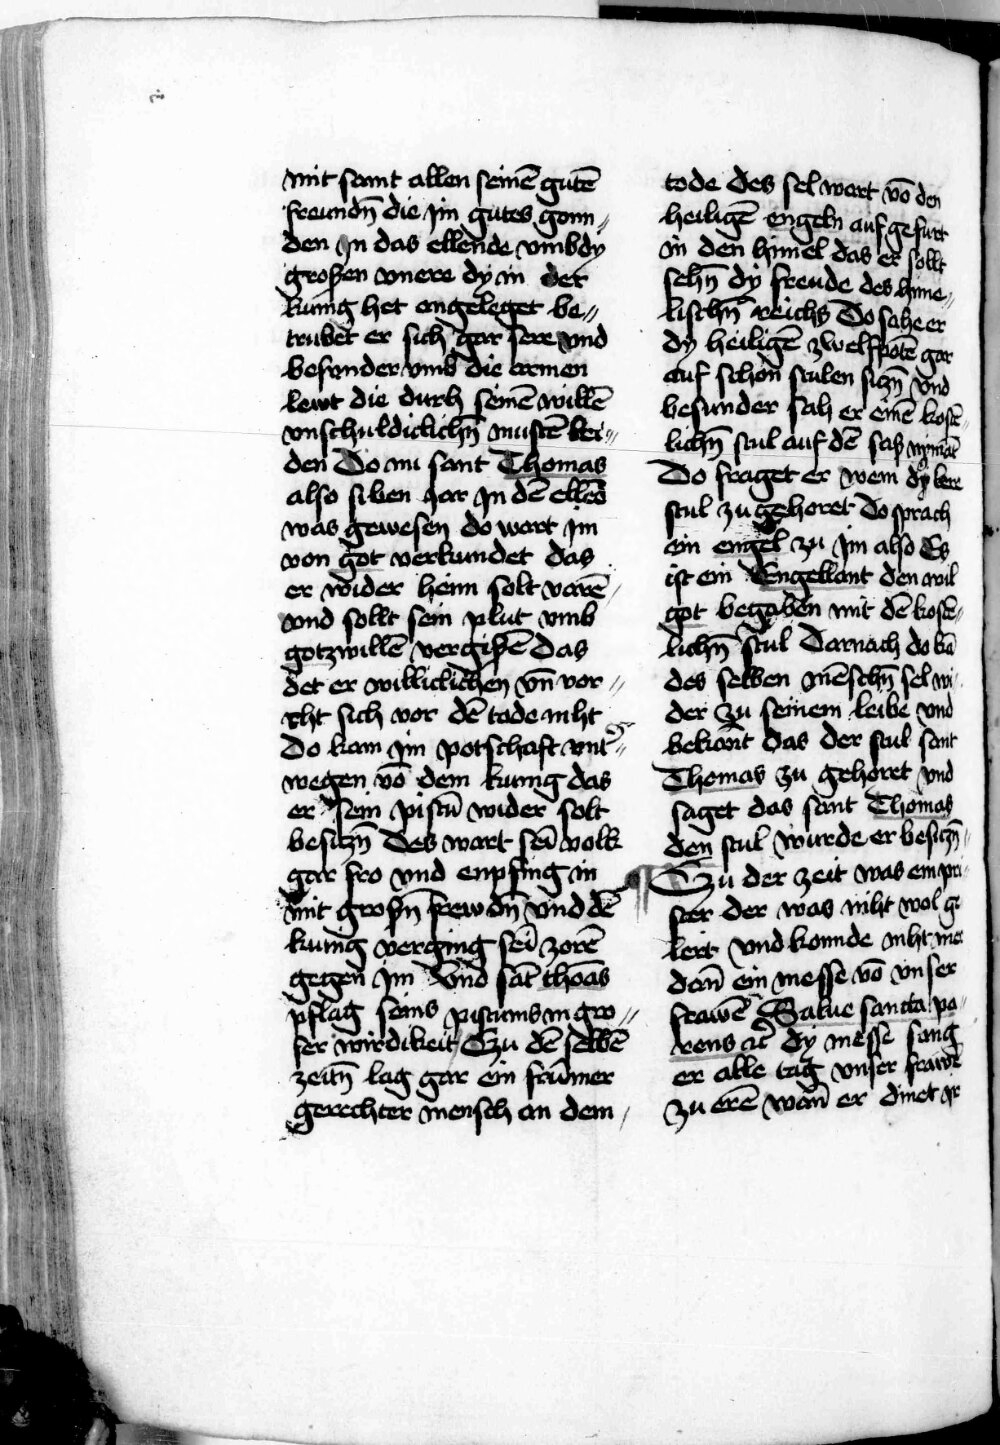 mit samt allen seinē gutē
freundn̄ die jm gutes gonn〃
den Jn das ellende vmb dy
großen vnere dy in der
kunig het angeleget be〃
trubet er sich gar sere vnd
besunder vmb die armen
lewt die durch seinē willē
vnschuldiclichn̄ mustē lei〃
den Do nu sant Thomas
also siben Jar Jn dē ellēd
was gewesen do wart jm
von got verkundet das
er wider heim solt varē
vnd sollt sein plut vmb
gotzwillē vergißē Das
det er williclichen vn̄ vor〃
cht sich vor dē tode niht
Do kam jm potschaft vnt̕〃
wegen vō dem kunig das
er sein pistū wider solt
besiczn̄ Des wart sei volk
gar fro vnd enpfing in
mit großn̄ frewdn̄ vnd dē
kunig verging sei zorē
gegen jm Vnd sāt thoās
pflag seins pistums in gro〃
ser wirdikeit Czu dē selbē
zeitn̄ lag gar ein frūmer
gerechter mensch an dem
tode des sel wart vō den
heiligē engeln auf gefurt
in den himel das er sollt
sehn̄ dy freude des hime〃
lischn̄ reichs Do sahe er
dy heiligē zwelfpotē gar
auf schōn stulen siczn̄ vnd
besunder sah er einē kostē
lichn̄ stul auf dē saß nimāt
Do fraget er wem dy lere
stul zu gehoret Do sprach
ein engel zu jm also Es
ist ein Engellant den wil
got begaben mit dē kostē〃
lichn̄ stul Darnach do kā
des selben mēschn̄ sel wi
der zu seinem leibe vnd
bekānt das der stul sant
Thomas zu gehoret vnd
saget das sant Thomas
den stul wurde er besiczn̄
Czu der zeit was ein pri
ster der was niht wol ge
lert vnd konnde niht mer
dān ein messe vō vnser
frawē Salue sancta pa〃
rens ꝛc̄ dy messe sang
er alle tag vnser frawē
zu erē wān er dinet jr